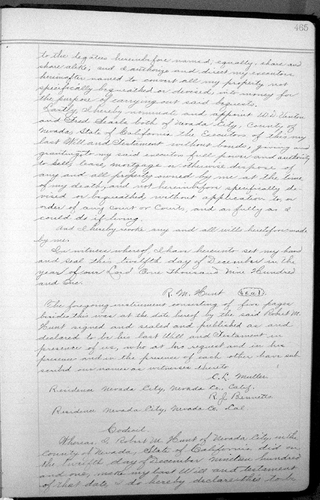 465
to the legatees hereinbefore named, equally, share and
share alike; and I authorize and direct my executors
hereinafter named to convert all my property not
specifically bequeathed or devised into money for
the purpose of carrying out said bequests.
Lastly, I hereby nominate and appoint
and Fred Searls both of Nevada City, County of
Nevada, State of California the Executors of this my
last Will and Testament without bonds, giving and
granting to my said executors full power and authority
to sell, lease, mortgage or otherwise dispose of
any and all property owned by me at the time
of my death, and not hereinbefore specifically de-
vised or bequeathed, without application to or
order of any Court or Courts, and as fully as I
could do if living.
And I hereby revoke any and all wills heretofore made
by me.
In witness whereof I have hereunto set my hand
and seal this twelfth day of December in the
year of our Lord One thousand Nine Hundred
and One.
R. M. Hunt (Seal)
The foregoing instrument consisting of five pages
besides this was at the date hereof by the said Robert M.
Hunt signed and sealed and published as and
declared to be his last Will and Testament in
presence of us, who at his request and in his
presence and in the presence of each other have sub-
scribed our names as witnesses thereto.
C. L. Muller
Residence Nevada City, Nevada Co. Calif.
R. J. Bennetts
Residence Nevada City, Nevada Co. Cal
Codicil
Whereas I, Robert M. Hunt of Nevada City, in the
County of Nevada, State of California did on
the twelfth day of December Nineteen hundred
and one, make my last Will and testament
of that date, I do hereby declare this to be